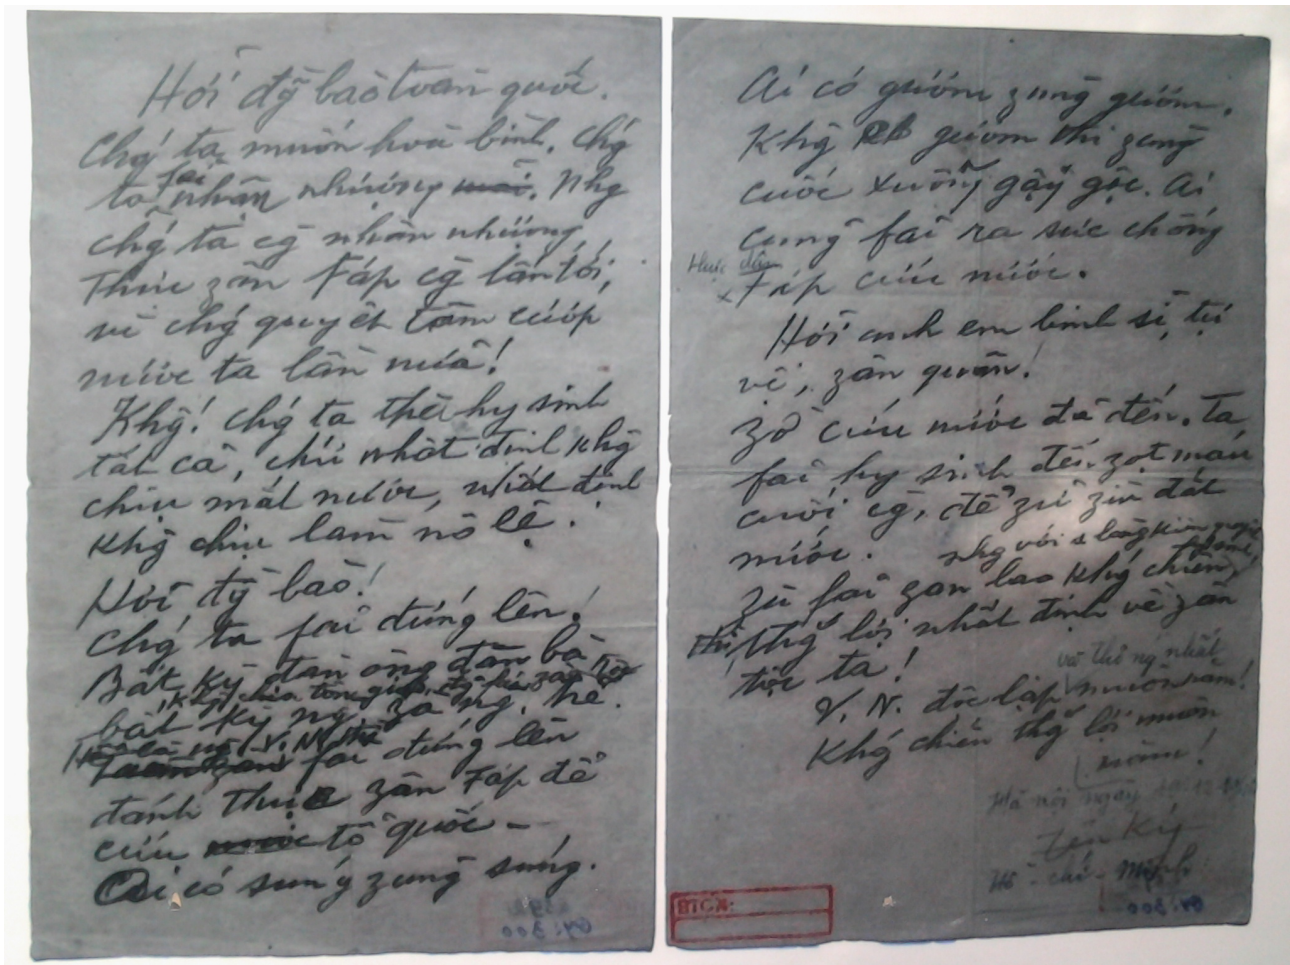 Hỡi đg̃ bào toàn quốc.
Chǵ ta muốn hoà bình, chǵ
ta fải nhân nhượng. Nhg
chǵ ta cg̀ nhân nhượng
thực zân Fáp cg̀ lấn tới,
vì chǵ quyết tâm cướp
nước ta lần nữa!
Khg! chǵ ta thà hy sinh
tất cả, chứ nhất định khg
chịu mất nước, nhất định
khg chịu làm nô lệ.
Hỡi đg̀ bào!
Chǵ ta fải đứng lên!
Bất kỳ đàn ông đàn bà
bất kỳ ng. zà ng. trẻ.
Hễ là ng. V.N. thì
fải đứng lên
đánh thực zân Fáp để
cứu tổ quốc –
Ai có súng zùng súng.
Ai có gươm zùng gươm,
Khg có gươm thì zùng
cuốc xuổng gậy gộc. Ai
cũng fải ra sức chống
thực dân
Fáp cứu nước.
Hỡi anh em binh sĩ, tự
vệ, zân quân!
Zờ cứu nước đã đến. Ta
fải hy sinh đến zọt máu
cuối cg̀, để zữ zìn đất
nước.
nhg với 1 lòng kiên quyết
hy sinh,
Zù fải zan lao khǵ chiến,
Thì thǵ lợi nhất định về zân
tộc ta!
và thống nhất
V. N. độc lập muôn năm!
Khǵ chiến thǵ lợi muôn
năm!
Hà nội ngày 19-12-
Hồ - chí - Minh
BTCM: